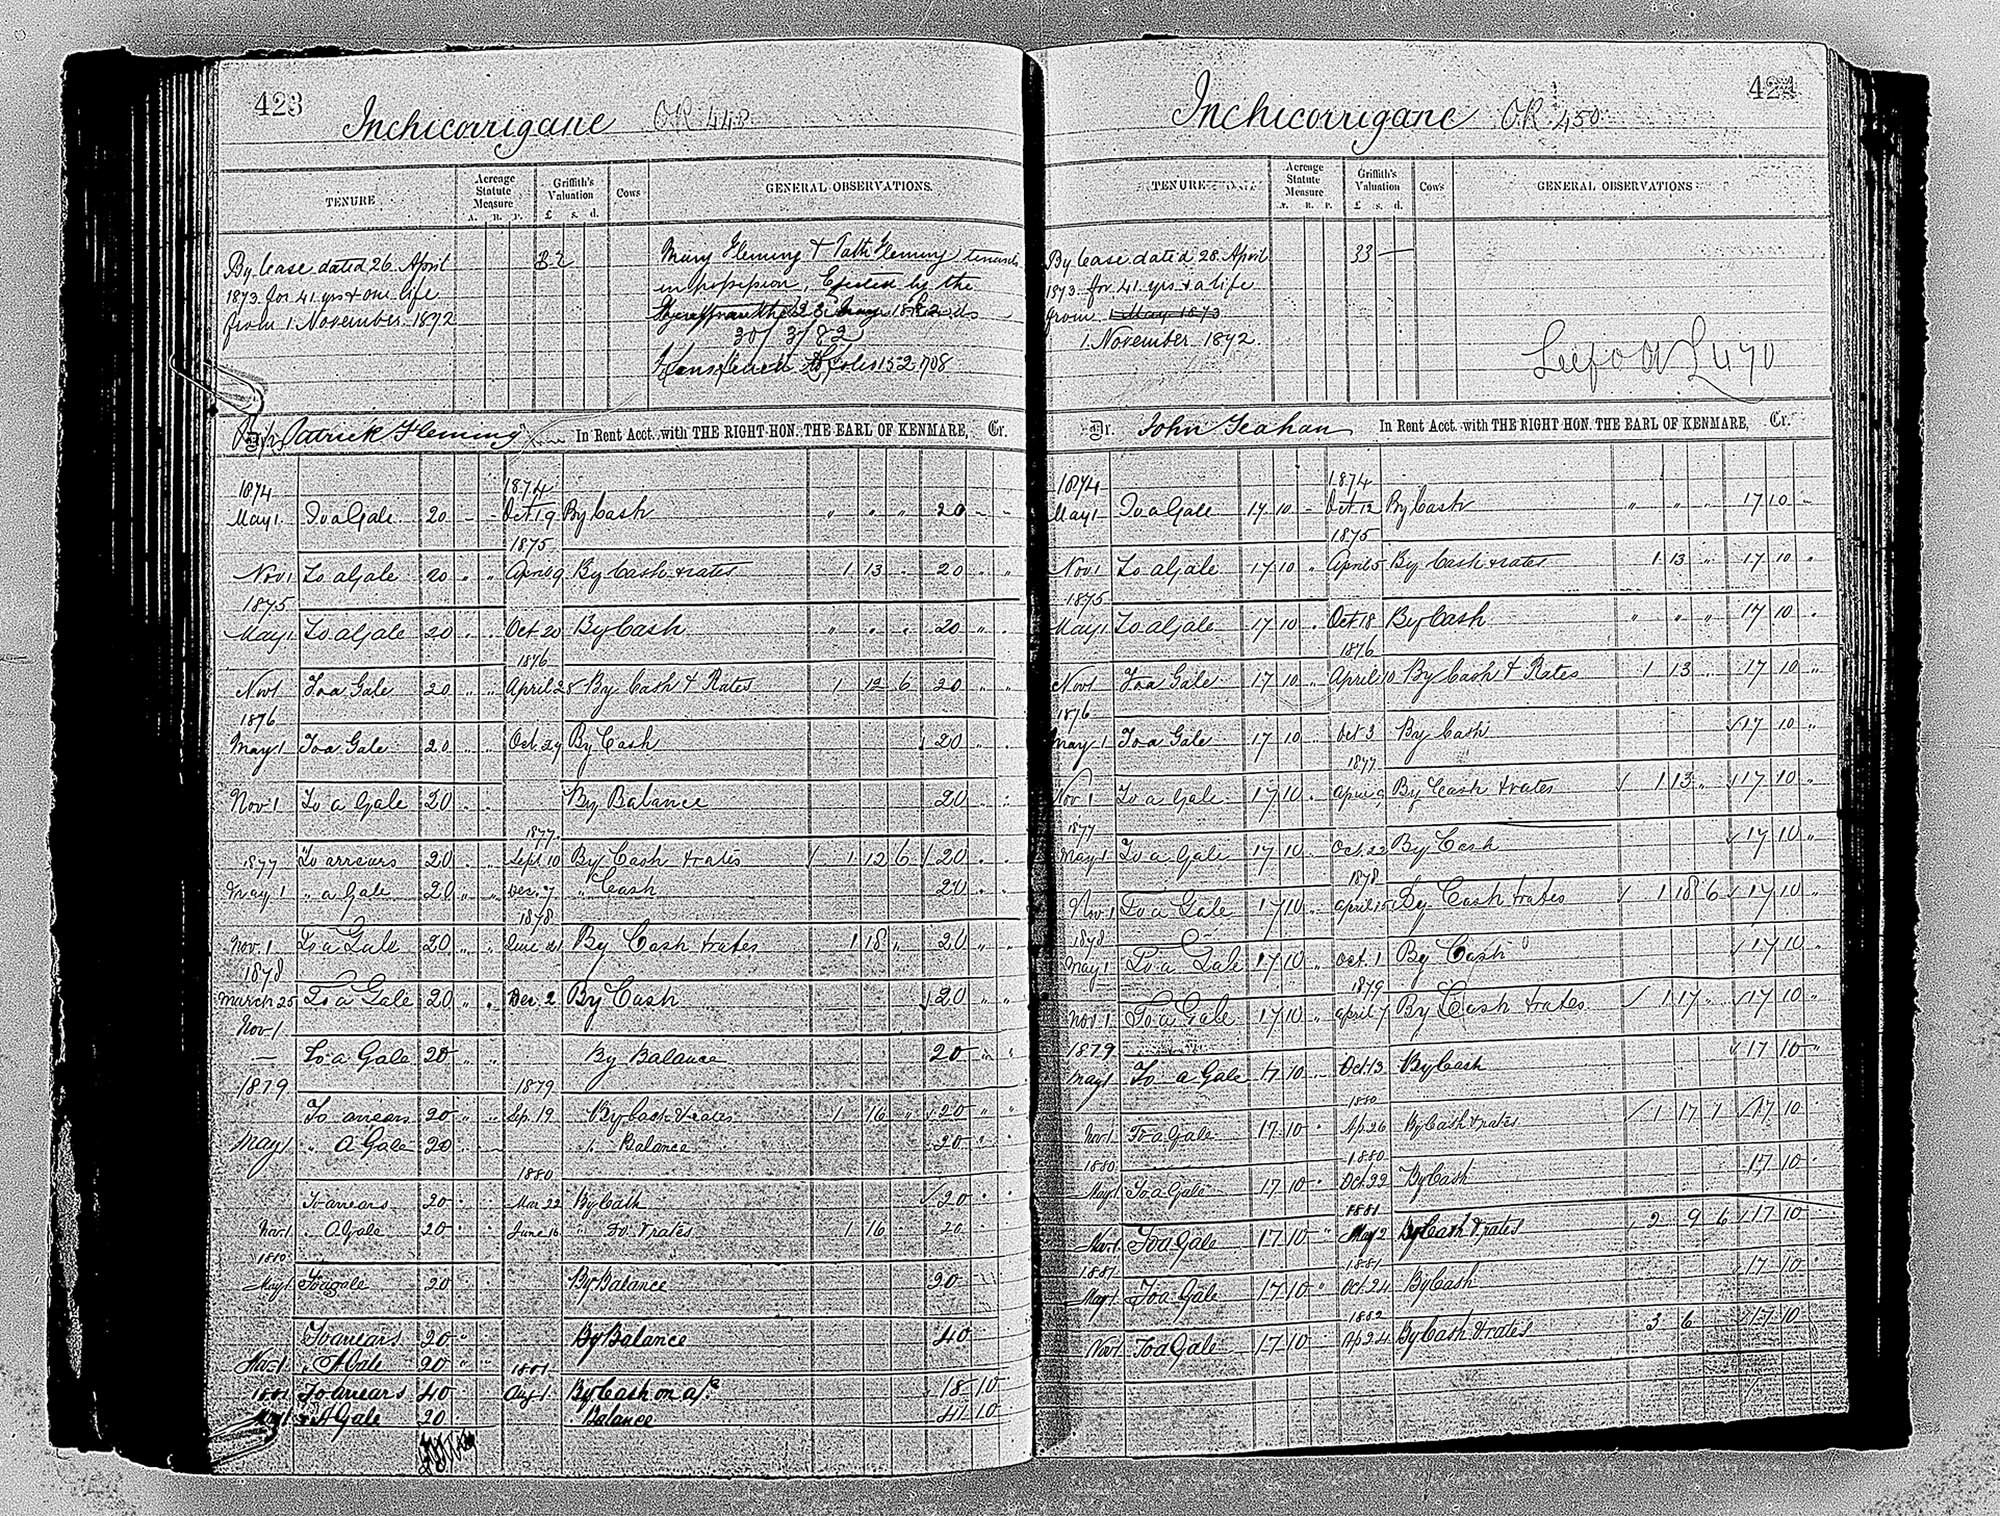 423
Inchicorrigane OR 443
TENURE
Acreage Statute Measure
A. R. P.
Griffith's Valuation
£ s. d.
Cows
GENERAL OBSERVATIONS.
By lease dated 26 April
1873 for 41 yrs & one life
from 1 November 1872
32
Mary Fleming & Path Fleming tenants
in possession. Ejected by the
30/3/82
Dr. Patrick Fleming In Rent Acct. with THE RIGHT HON. THE EARL OF KENMARE, Cr.
1874 1874
May 1 To a Gale 20 - - Oct 19 By Cash " " " 20 - -
1875
Nov 1 To a Gale 20 " " April 9 By Cash & rates 1 13 " 20 " "
1875
May 1 To a Gale 20 " " Oct 20 By Cash " " " 20 " "
1876
Nov 1 To a Gale 20 " " April 28 By Cash & Rates 1 12 6 20 " "
1876
May 1 To a Gale 20 " " Oct 24 By Cash 20 " "
Nov 1 To a Gale 20 " " By Balance 20 " "
1877
1877 To arrears 20 " " Sept 10 By Cash & rates 1 12 6 20 " "
May 1 " a Gale 20 " " Dec. 7 " Cash 20 " "
1878
Nov. 1 To a Gale 20 " " June 21 By Cash & rates 1 18 " 20 " "
1878
March 25 To a Gale 20 " " Dec. 2 By Cash 20 " "
Nov 1
— To a Gale 20 " " By Balance 20 " "
1879 1879
To arrears 20 " " Sep. 19 By Cash & rates 1 16 " 20 " "
May 1 " A Gale 20 " Balance 20 "
1880
To arrears 20 " Mar 22 By Cash 20 " "
Nov 1 " A Gale 20 " June 16 " Do & rates 1 16 20 "
1880
May 1 To a gale 20 " By Balance 20
To arrears 20 " By Balance 40
Nov 1 " A Gale 20 " "
1881
1881 To arrears 40 Aug 1 By Cash on a/c 18 10
May 1 " A Gale 20 Balance 41 10
424
Inchicorrigane OR 450
TENURE
Acreage Statute Measure
A. R. P.
Griffith's Valuation
£ s. d.
Cows
GENERAL OBSERVATIONS
By lease dated 28 April
1873 for 41 yrs & a life
from 1 May 1873
1 November 1872
33 —
Dr. John Teahan In Rent Acct. with THE RIGHT HON. THE EARL OF KENMARE, Cr.
1874 1874
May 1 To a Gale 17 10 - Oct 12 By Cash " " " 17 10 -
1875
Nov 1 To a Gale 17 10 " April 5 By Cash & rates 1 13 " 17 10 "
1875
May 1 To a Gale 17 10 " Oct 18 By Cash " " " 17 10 "
1876
Nov 1 To a Gale 17 10 " April 10 By Cash & Rates 1 13 " 17 10 "
1876
May 1 To a Gale 17 10 " Oct 3 By Cash 17 10 "
1877
Nov 1 To a Gale 17 10 " April 9 By Cash & rates 1 13 " 17 10 "
1877
May 1 To a Gale 17 10 " Oct. 22 By Cash 17 10 "
1878
Nov. 1 To a Gale 17 10 " April 15 By Cash & rates 1 18 6 17 10 "
1878
May 1 To a Gale 17 10 " Oct. 1 By Cash 17 10 "
1879
Nov. 1 To a Gale 17 10 " April 7 By Cash & rates 1 17 " 17 10 "
1879
May 1 To a Gale 17 10 " Oct. 13 By Cash 17 10 "
1880
Nov 1 To a Gale 17 10 " Ap 26 By Cash & rates 1 17 1 17 10
1880 1880
May 1 To a Gale 17 10 " Oct 22 By Cash 17 10
1881
Nov 1 To a Gale 17 10 " May 2 By Cash & rates 2 9 6 17 10
1881 1881
May 1 To a Gale 17 10 " Oct 24 By Cash 17 10
1882
Nov 1 To a Gale 17 10 Ap 24 By Cash & rates 3 6 17 10